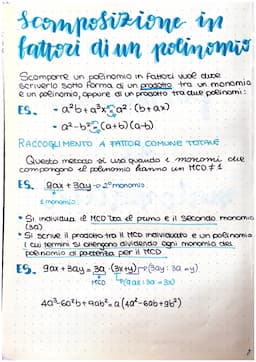 Scomposizione in
fattori di un polinomio
Scomporre un polinomio in fattori vuol dire
scriverlo sotto forma di un prodotto tra un monomio
e un polinomio, oppure di un prodotto tra due polinomi:
ES. - a²b + a³x = a² · (b + ax)
- a² - b² = (a+b)(a-b)
RACCOGLIMENTO A FATTOR COMUNE TOTALE
Questo metodo si usa quando i monomi che
compongono il polinomio hanno un MCD ≠ 1
ES. 9ax + 3ay → 2° monomio
1 monomio
• Si individua il MCD tra il primo e il secondo monomio
(3a)
• Si scrive il prodotto tra il MCD individuato e un polinomio
i cui termini si ottengono dividendo ogni monomio del
polinomio di partenza per il MCD
ES. 9ax + 3ay = 3a · (3x+y) → (3ay : 3a = y)
MCD (9ax : 3a = 3x)
4a³ - 6a²b + 9ab² = a (4a² - 6ab + 9b²)